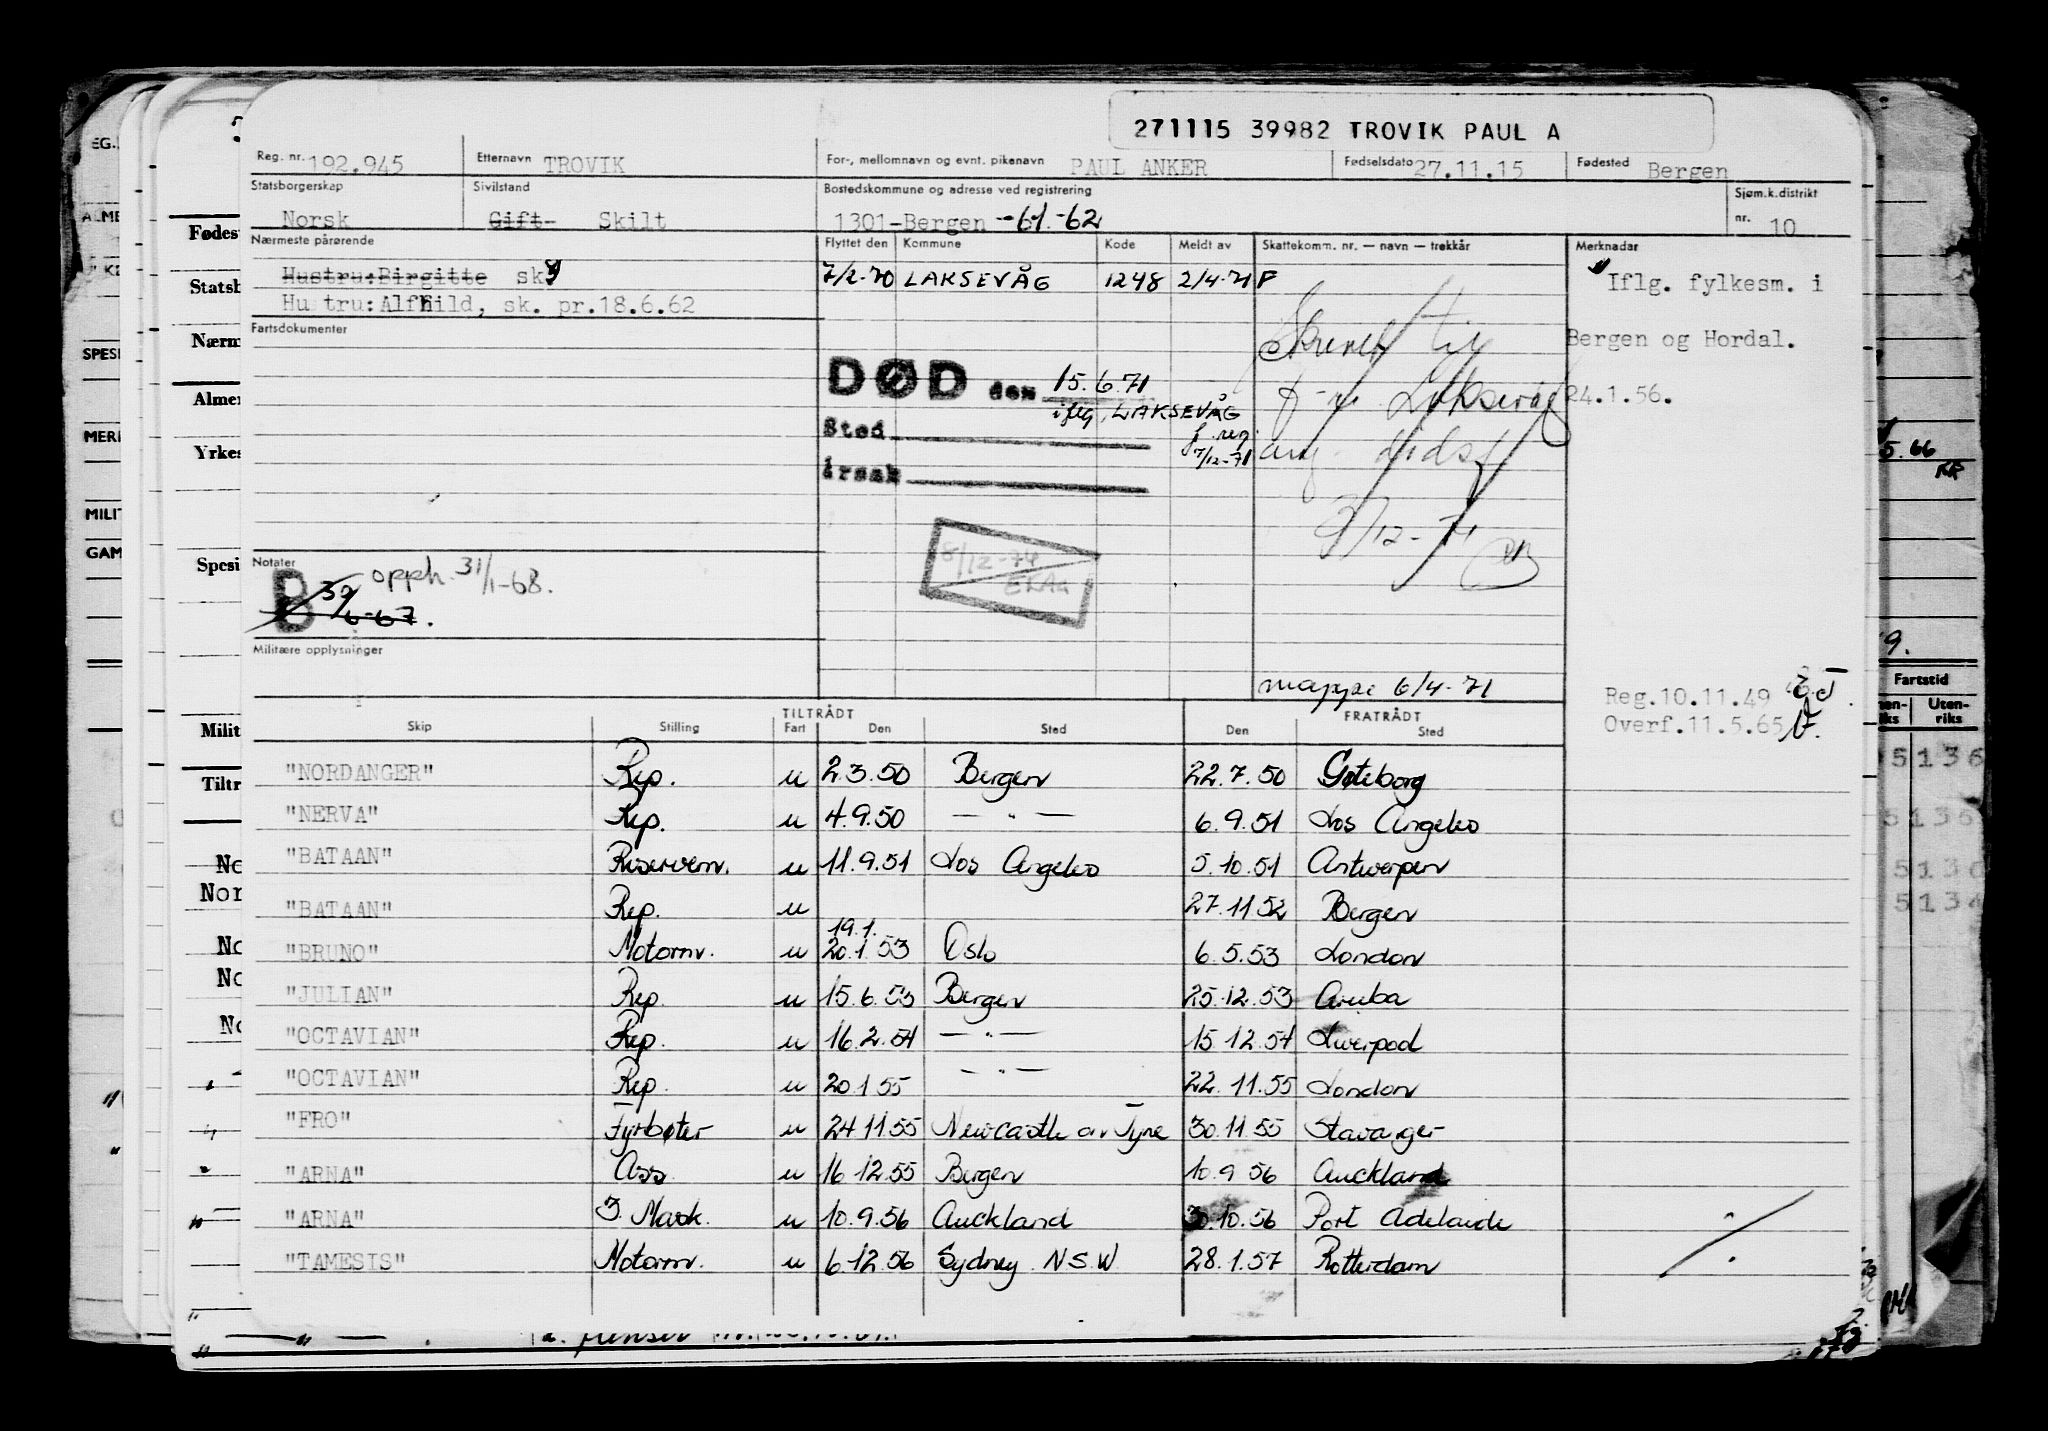 271115 39982 TROVIK PAUL A
Reg. nr. 192.945 Etternavn TROVIK For-, mellomnavn og evnt. pikenavn PAUL ANKER Fødselsdato 27.11.15 Fødested Bergen
Statsborgerskap Sivilstand Bostedskommune og adresse ved registrering Sjøm.k.distrikt
Norsk Gift- Skilt 1301-Bergen -61-62 nr. 10
Nærmeste pårørende Flyttet den Kommune Kode Meldt av Skattekomm. nr. — navn — trekkår Merknader
Hustru:Birgitte sk. 7/2-70 LAKSEVÅG 1248 2/4-71 F Iflg. fylkesm. i
Hustru:Alfhild, sk. pr.18.6.62
Fartsdokumenter
Skrevet til Bergen og Hordal.
DØD den 15.6.71
iflg. LAKSEVÅG
f.reg.
7/12-71
24.1.56.
Sted
ang. dødsf.
årsak
9/12-71
8/12-74
Notater
B opph. 31/1-68.
6-67.
Militære opplysninger
mappe 6/4-71
Reg.10.11.49
Overf.11.5.65
TILTRÅDT FRATRÅDT
Skip Stilling Fart Den Sted Den Sted
"NORDANGER" Rep. u 2.3.50 Bergen 22.7.50 Gøteborg
"NERVA" Rep. u 4.9.50 — " — 6.9.51 Los Angeles
"BATAAN" Reservem. u 11.9.51 Los Angeles 5.10.51 Antwerpen
"BATAAN" Rep. u 27.11.52 Bergen
19.1.
"BRUNO" Motorm. u 20.1.53 Oslo 6.5.53 London
"JULIAN" Rep. u 15.6.53 Bergen 25.12.53 Aruba
"OCTAVIAN" Rep. u 16.2.54 — " — 15.12.54 Liverpool
"OCTAVIAN" Rep. u 20.1.55 — " — 22.11.55 London
"FRO" Fyrbøter u 24.11.55 Newcastle on Tyne 30.11.55 Stavanger
"ARNA" Ass. u 16.12.55 Bergen 10.9.56 Auckland
"ARNA" 3. Mask. u 10.9.56 Auckland 30.10.56 Port Adelaide
"TAMESIS" Motorm. u 6.12.56 Sydney N.S.W 28.1.57 Rotterdam
Fartstid
Uten-
riks
5136
5136
5136
5134